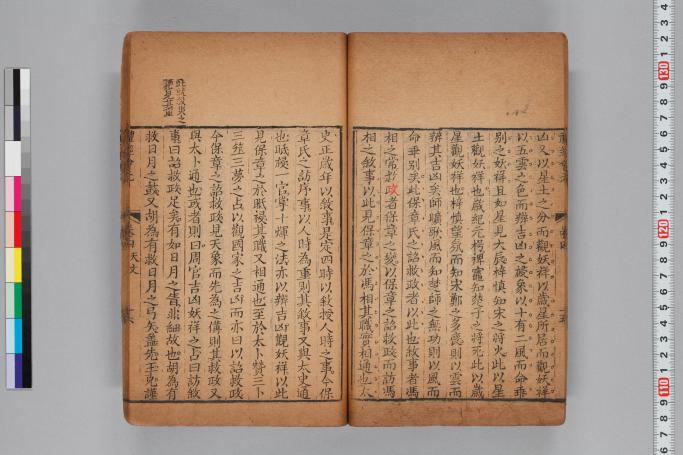 凶又以星土之分而觀妖祥以歲星所居而觀妖祥
以五雲之色而辨吉凶之祲象以十有二風而命乖
別之妖祥且如星見大辰梓慎知宋之將火此以星
土觀妖祥也歲紀元枵裨竈知楚子之將死此以歲
星觀妖祥也梓慎望氛而知宋鄭之多憂則以雲而
辨其吉凶矣師曠歌風而知楚師之無功則以風而
命乖別矣此保章氏之詔救政者以此也敘事者馮
相之常救政者保章之變以保章之詔救政而訪馮
相之敘事以此見保章之於馮相其職實相通也太
史正歲年以敘事是定四時以敘授人時之事今保
章氏之訪序事以人時為重則其敘事又與太史通
也眡祲一官掌十煇之法亦以辨吉凶觀妖祥以此
見保章之於眡祲其職又相通也至於太卜贊三卜
三筮三夢之占以觀國家之吉凶而亦曰以詔救政
今保章之詔救政見天象而先為之備則其救政又
與太卜通也或者則曰周官吉凶妖祥之占曰訪敘
事曰詔救政足矣有如日月之眚非細故也胡為有
救日月之鼓又胡為有救日月之弓矢蓋先王克謹
卷四 天文